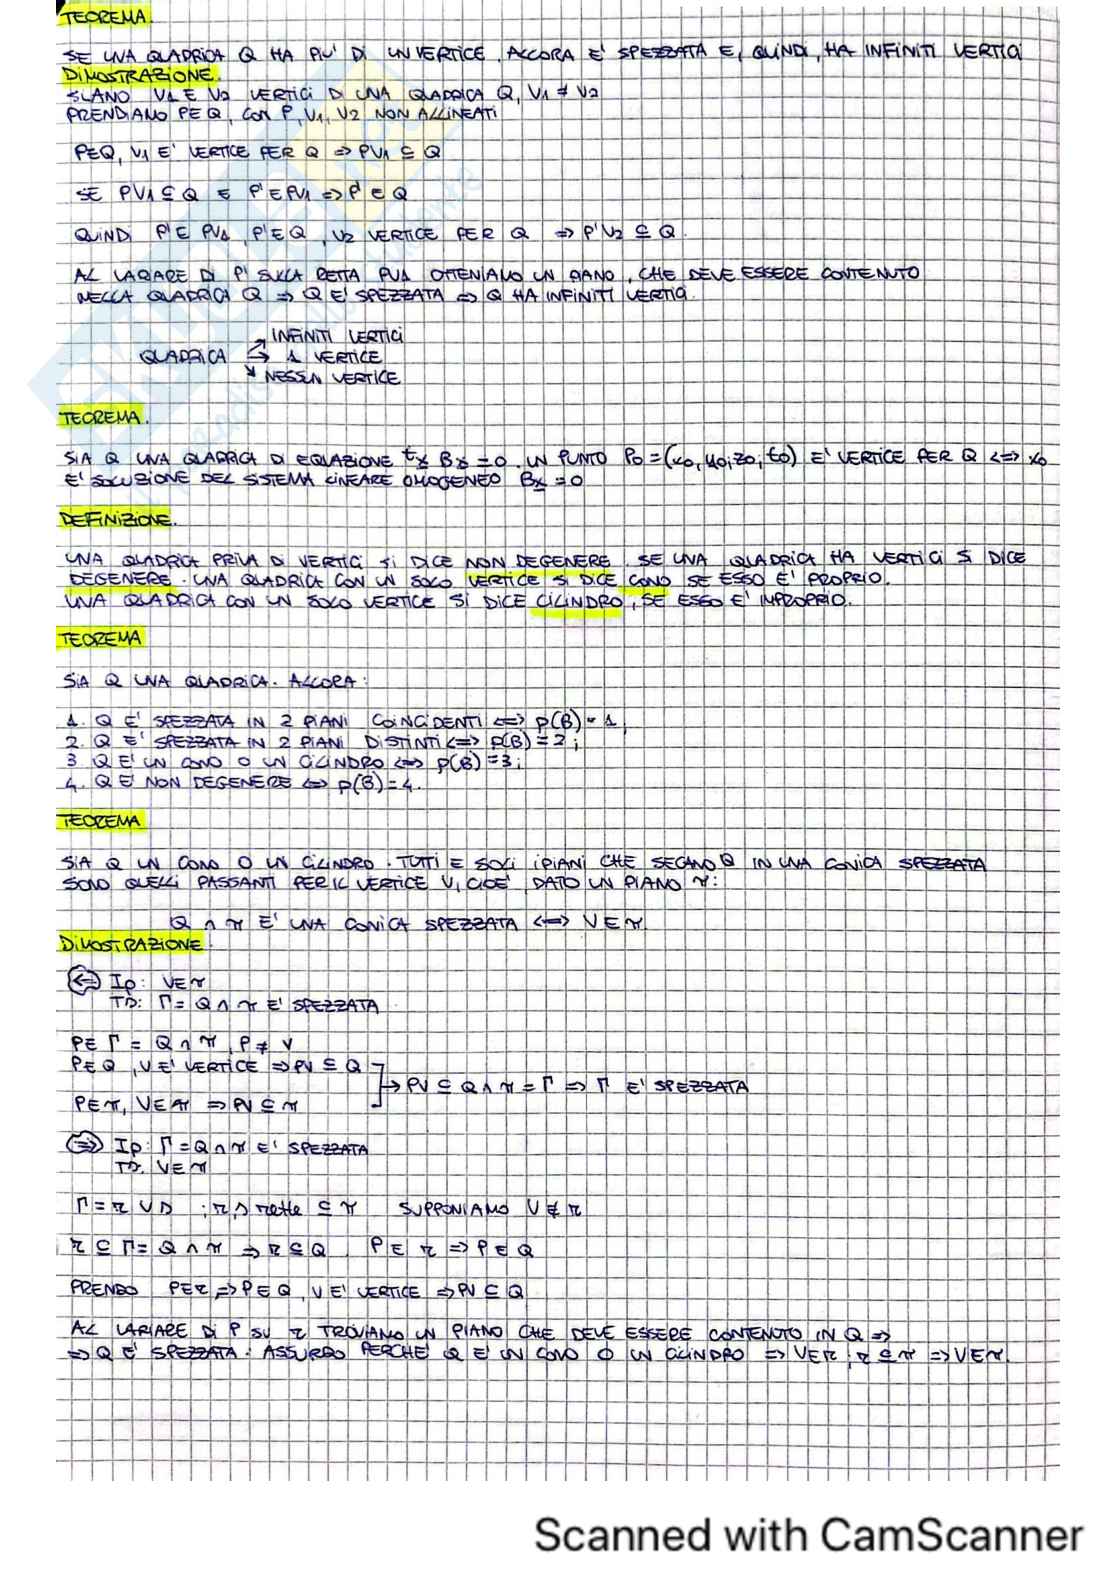 TEOREMA.
SE UNA QUADRICA Q HA PIU' DI UN VERTICE, ALLORA E' SPEZZATA E, QUINDI, HA INFINITI VERTICI
DIMOSTRAZIONE.
SIANO V1 E V2 VERTICI DI UNA QUADRICA Q, V1 ≠ V2
PRENDIAMO P∈Q, CON P, V1, V2 NON ALLINEATI
P∈Q, V1 E' VERTICE PER Q => PV1 ⊆ Q
SE PV1 ⊆ Q E P'∈PV1 => P' ∈ Q
QUINDI P'∈ PV1, P'∈Q, V2 VERTICE PER Q => P'V2 ⊆ Q.
AL VARIARE DI P' SULLA RETTA PV1 OTTENIAMO UN PIANO, CHE DEVE ESSERE CONTENUTO
NELLA QUADRICA Q => Q E' SPEZZATA => Q HA INFINITI VERTICI.
INFINITI VERTICI
QUADRICA → 1 VERTICE
NESSUN VERTICE
TEOREMA.
SIA Q UNA QUADRICA DI EQUAZIONE tx Bx = 0. UN PUNTO P0 = (x0, y0, z0, t0) E' VERTICE PER Q <=> x0
E' SOLUZIONE DEL SISTEMA LINEARE OMOGENEO Bx = 0
DEFINIZIONE.
UNA QUADRICA PRIVA DI VERTICI SI DICE NON DEGENERE. SE UNA QUADRICA HA VERTICI SI DICE
DEGENERE. UNA QUADRICA CON UN SOLO VERTICE SI DICE CONO SE ESSO E' PROPRIO.
UNA QUADRICA CON UN SOLO VERTICE SI DICE CILINDRO, SE ESSO E' IMPROPRIO.
TEOREMA
SIA Q UNA QUADRICA. ALLORA:
1. Q E' SPEZZATA IN 2 PIANI COINCIDENTI <=> ρ(B) = 1;
2. Q E' SPEZZATA IN 2 PIANI DISTINTI <=> ρ(B) = 2;
3 Q E' UN CONO O UN CILINDRO <=> ρ(B) = 3;
4. Q E' NON DEGENERE <=> ρ(B) = 4.
TEOREMA
SIA Q UN CONO O UN CILINDRO. TUTTI E SOLI I PIANI CHE SECANO Q IN UNA CONICA SPEZZATA
SONO QUELLI PASSANTI PER IL VERTICE V, CIOE' DATO UN PIANO π:
Q ∩ π E' UNA CONICA SPEZZATA <=> V∈π.
DIMOSTRAZIONE.
<= Ip: V∈π
TD: Γ = Q ∩ π E' SPEZZATA
P∈ Γ = Q ∩ π, P ≠ V
P∈Q, V E' VERTICE => PV ⊆ Q
→ PV ⊆ Q ∩ π = Γ => Γ E' SPEZZATA
P∈π, V∈π => PV ⊆ π
=> Ip: Γ = Q ∩ π E' SPEZZATA
TD. V∈π
Γ = r ∪ s ; r, s rette ⊆ π SUPPONIAMO V ∉ r
r ⊆ Γ = Q ∩ π => r ⊆ Q. P∈ r => P∈Q
PRENDO P∈r => P∈Q, V E' VERTICE => PV ⊆ Q
AL VARIARE DI P SU r TROVIAMO UN PIANO CHE DEVE ESSERE CONTENUTO IN Q =>
=> Q E' SPEZZATA. ASSURDO PERCHE' Q E' UN CONO O UN CILINDRO => V∈r, r ⊆ π => V∈π.
Scanned with CamScanner